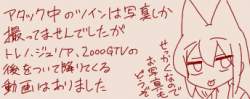 アタック中のツインは写真しか
撮ってませんでしたが
トレノ、ジュリア、2000GTVの
後をついて降りてくる
動画はありました
せっかくなので
お写真も
どうぞ